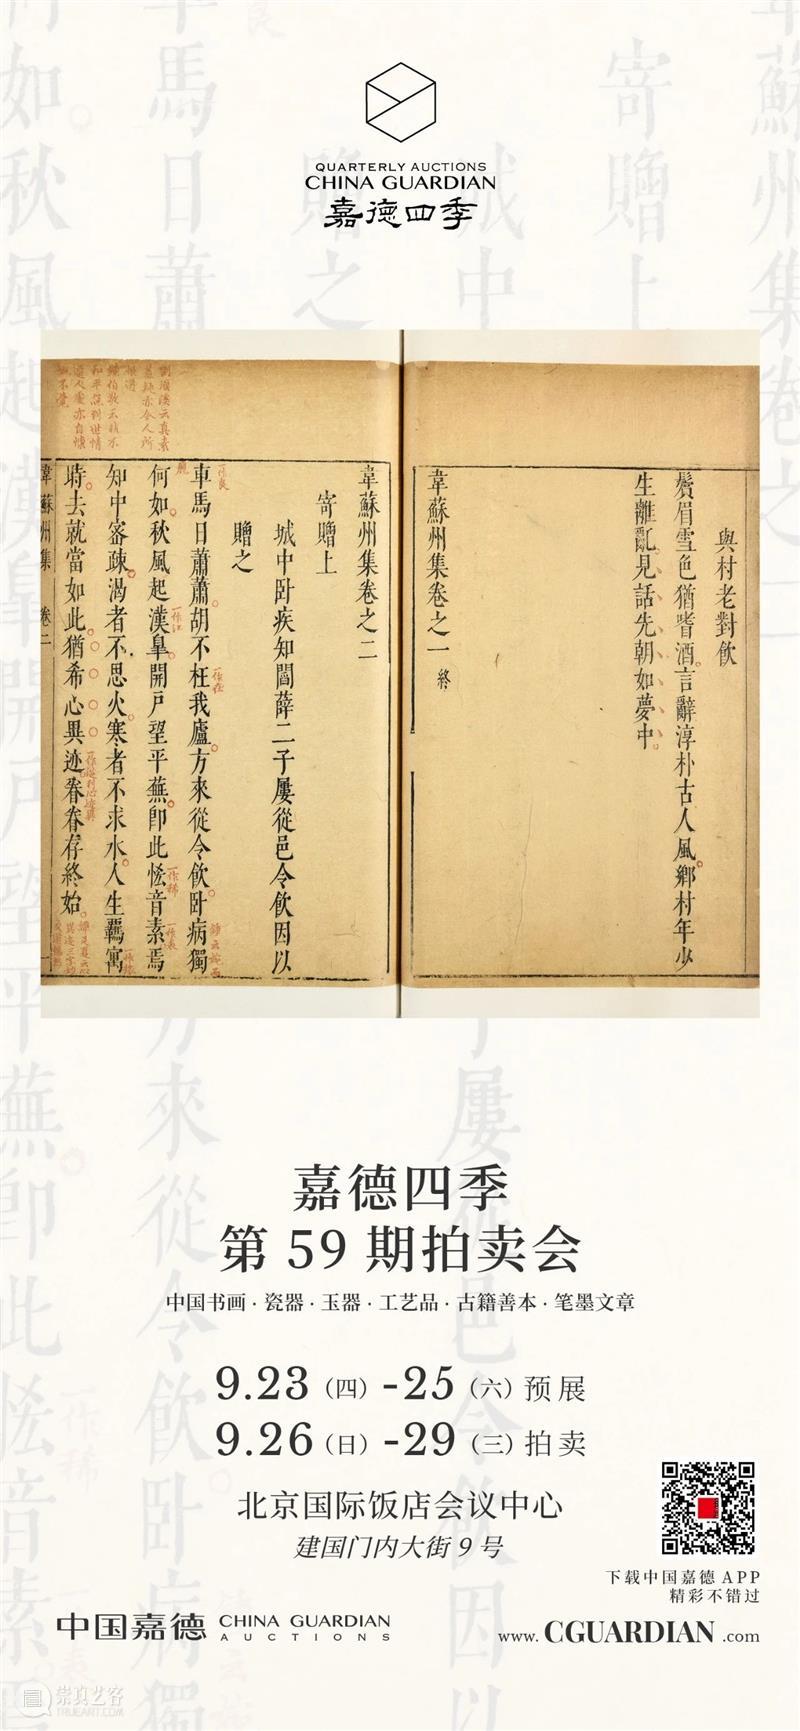 QUARTERLY AUCTIONS
CHINA GUARDIAN
嘉德四季
與村老對飲
鬢眉雪色猶嗜酒言辭淳朴古人風鄉村年少
生離亂見話先朝如夢中
韋蘇州集卷之一 終
韋蘇州集卷之二
寄贈上
城中卧疾知閻薛二子屢從邑令飲因以
贈之
車馬日蕭蕭胡不枉我廬方來從令飲卧病獨
何如秋風起漢皐開戶望平蕪卽此恡音素焉
知中密疎渴者不思火寒者不求水人生羇寓
時去就當如此猶希心異迹眷眷存終始
韋蘇州集 卷二
一作良
一作江
一作在
一作稀
一作表
嘉德四季
第 59 期拍卖会
中国书画 · 瓷器 · 玉器 · 工艺品 · 古籍善本 · 笔墨文章
9.23（四）-25（六）预展
9.26（日）-29（三）拍卖
北京国际饭店会议中心
建国门内大街 9 号
下载中国嘉德 APP
精彩不错过
中国嘉德 CHINA GUARDIAN
AUCTIONS
www. CGUARDIAN .com
崇真艺客
TRUEART.COM